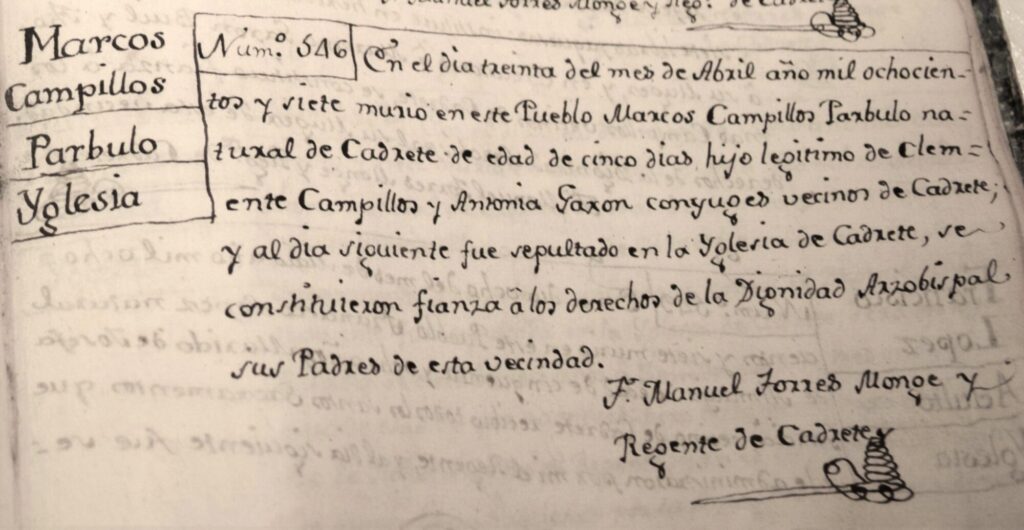 Manuel Torres Monge y Reg.
Marcos
Campillos
Parbulo
Yglesia
Num.º 546
En el dia treinta del mes de Abril año mil ochocien-
tos y siete murio en este Pueblo Marcos Campillos Parbulo na=
tural de Cadrete de edad de cinco dias, hijo legitimo de Clem=
ente Campillos y Antonia Garon conyuges vecinos de Cadrete;
y al dia siguiente fue sepultado en la Yglesia de Cadrete, se
constituieron fianza â los derechos de la Dignidad Arzobispal
sus Padres de esta vecindad.
Fr. Manuel Torres Monge y
Regente de Cadrete